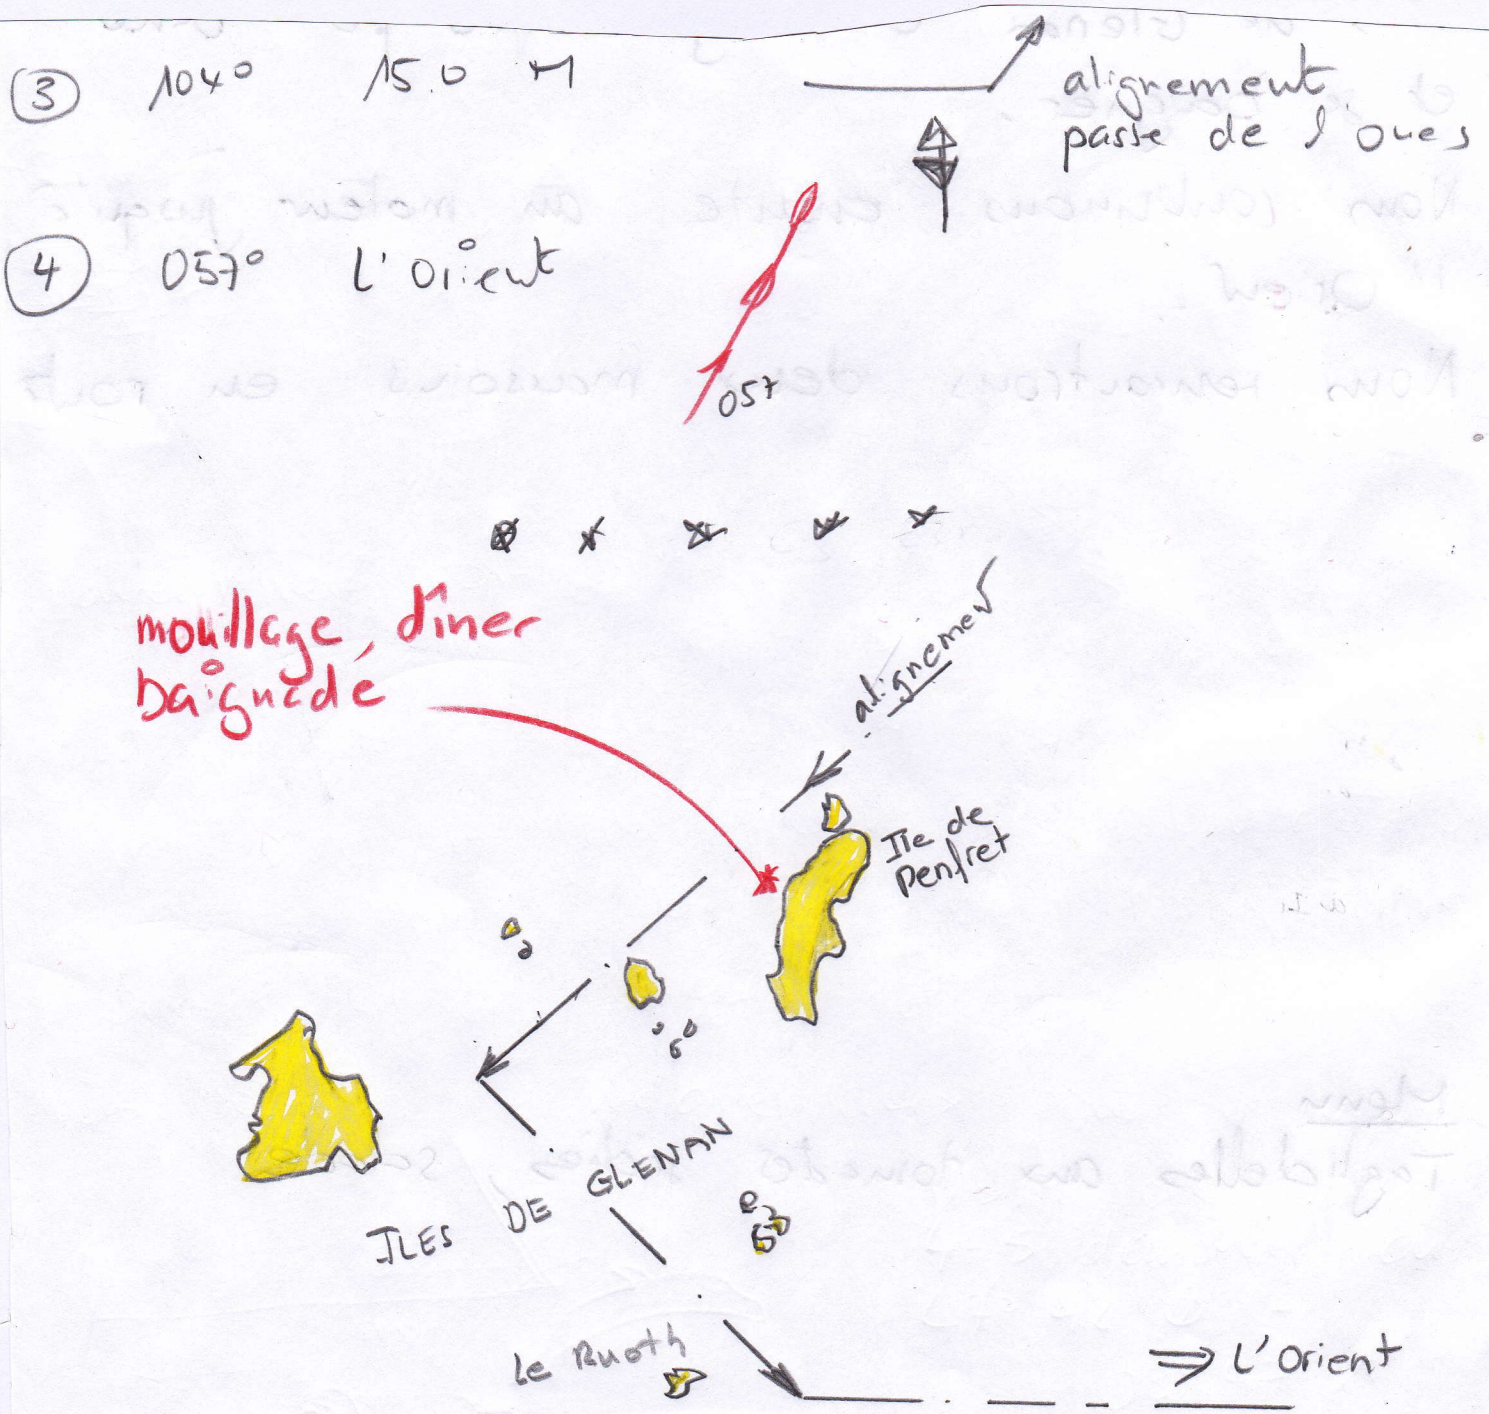 3 104° 15.0 M
alignement
passe de l'oues
4 057° l'Orient
057
mouillage, dîner
baignade
alignement
Ile de
Penfret
ILES DE GLENAN
le Ruoth
⇒ L'Orient